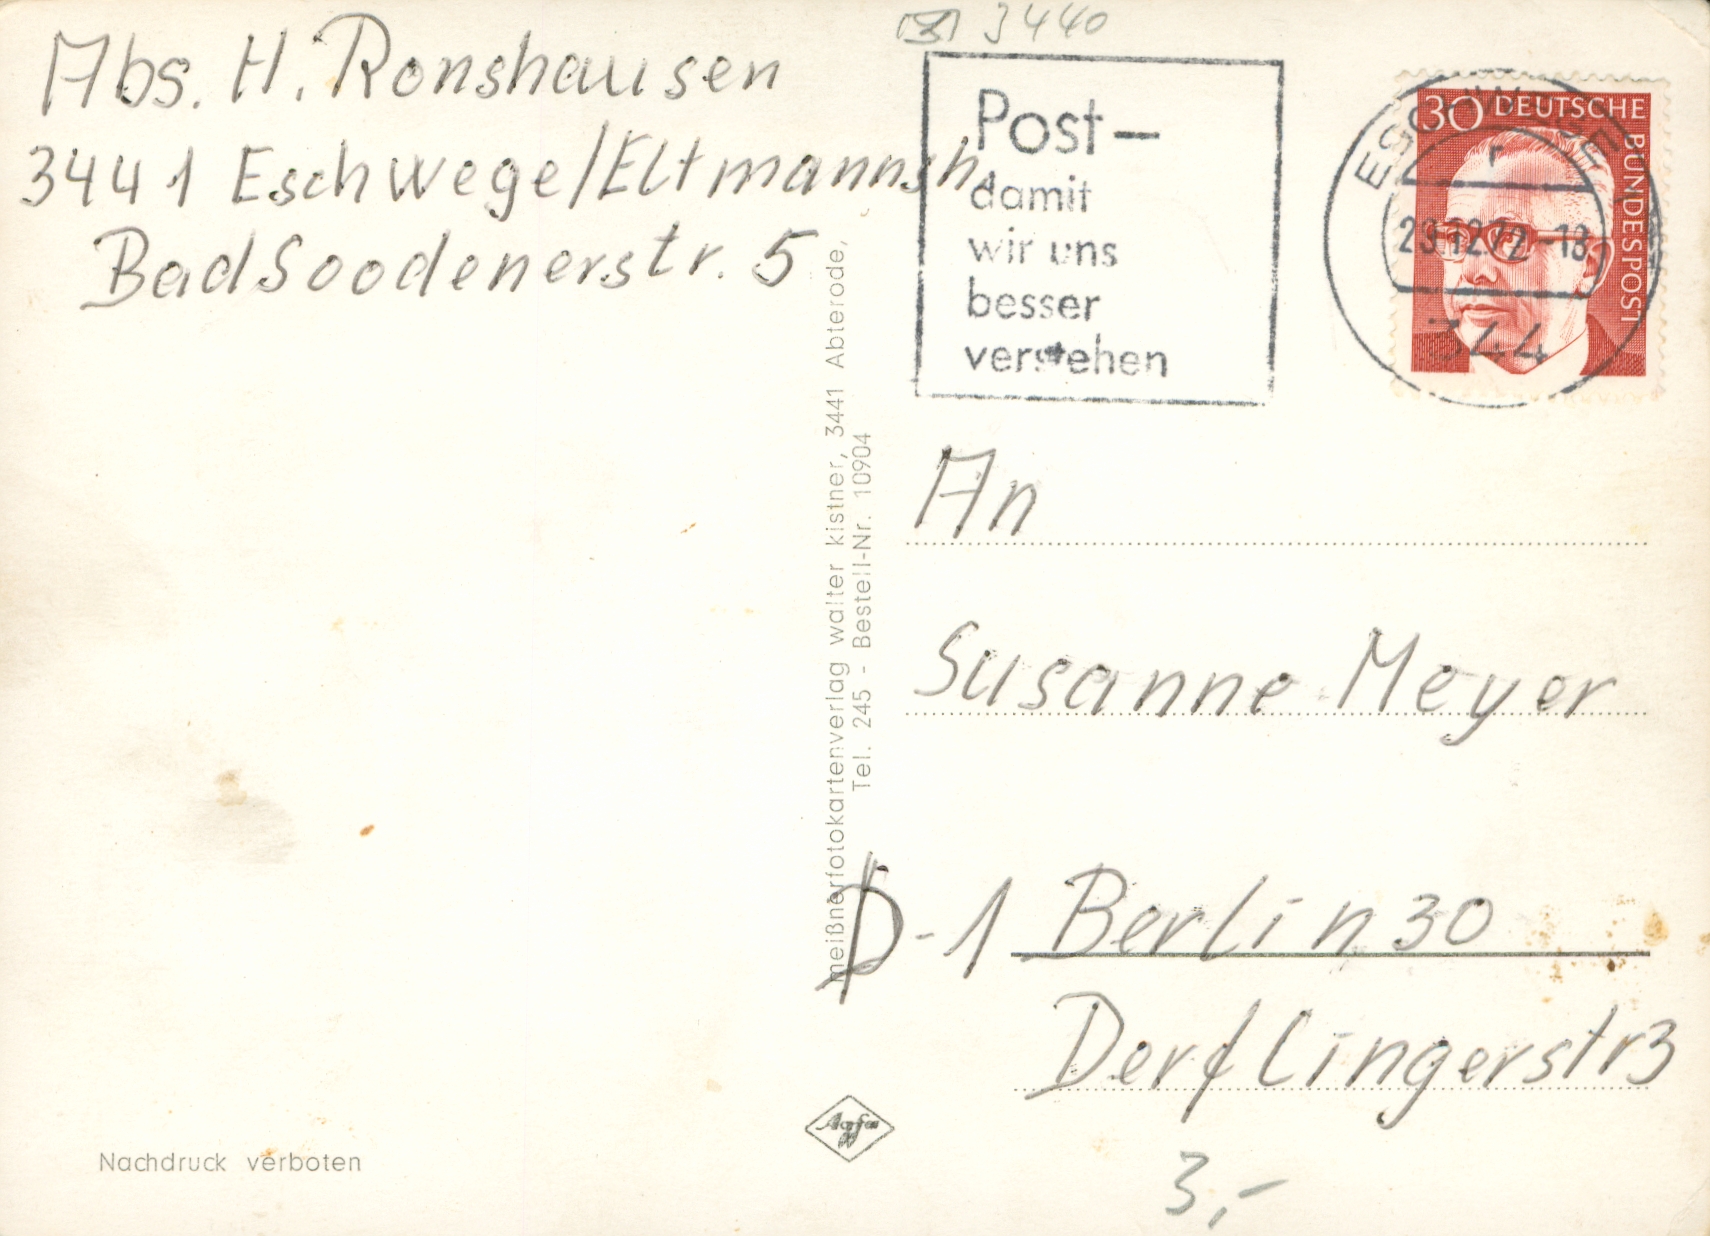 Abs. H. Ronshausen
3441 Eschwege/Eltmannsh.
Bad Soodenerstr. 5
3440
Post–
damit
wir uns
besser
verstehen
30 DEUTSCHE BUNDESPOST
ESCHWEGE 1
r
29.12.72-18
344
meißnerfotokartenverlag walter kistner, 3441 Abterode,
Tel. 245 - Bestell-Nr. 10904
An
Susanne Meyer
D-1 Berlin 30
Derfflingerstr 3
Agfa
Nachdruck verboten
3,-